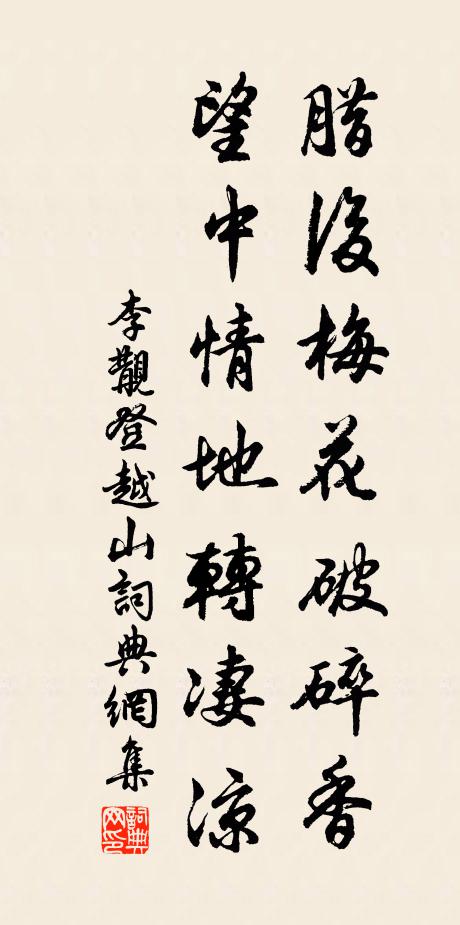 腊後梅花破碎香
望中情地轉凄涼
李覯登越山詞典網集
詞典網印